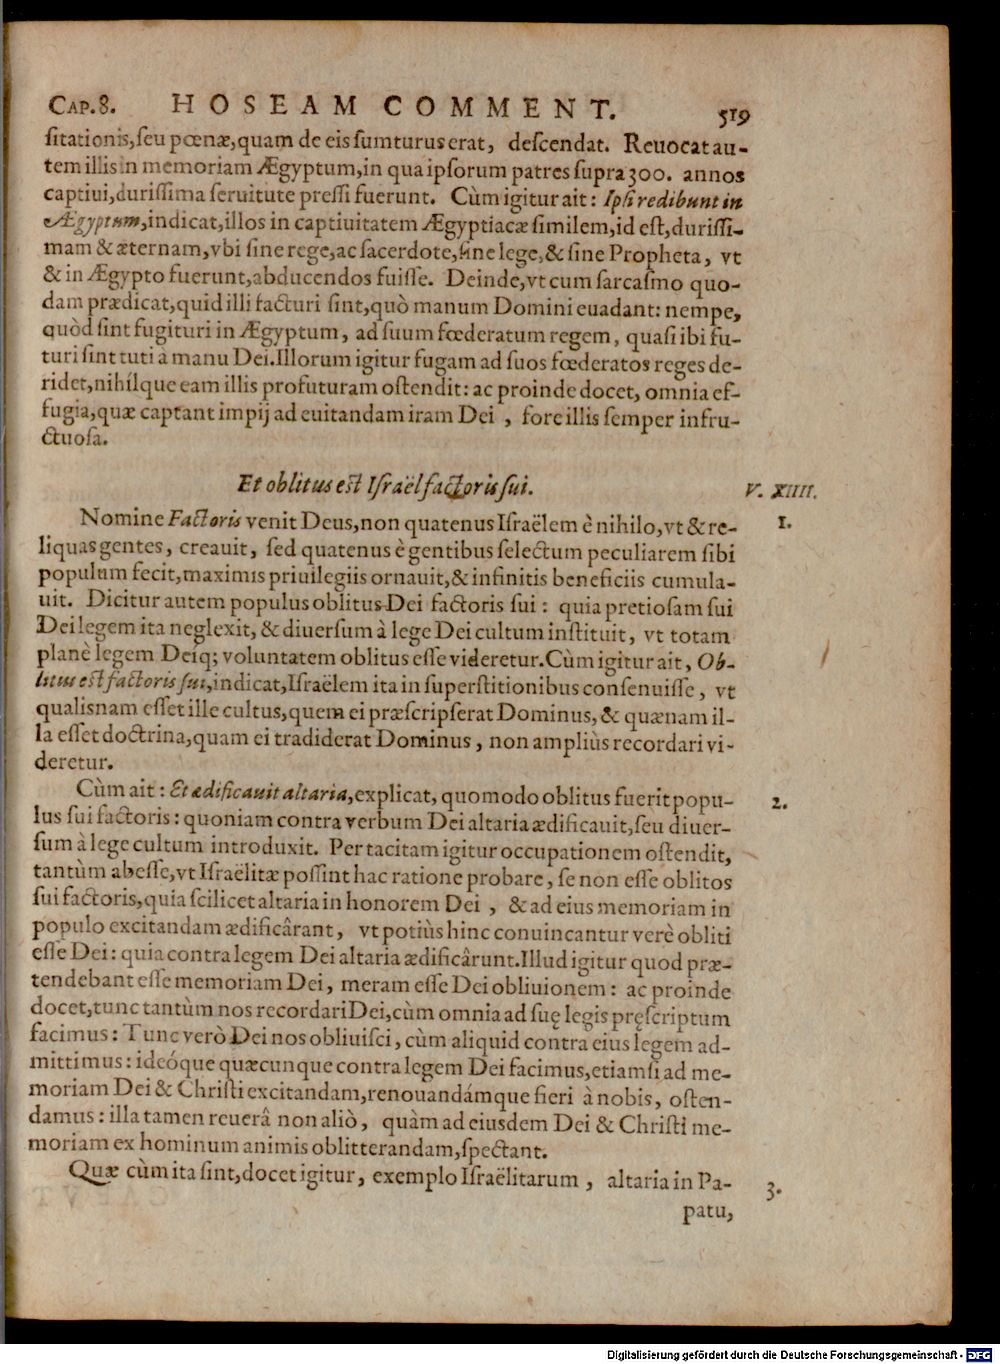 CAP.8. HOSEAM COMMENT. 519
ſitationis,ſeu pœnæ,quam de eis ſumturus erat, deſcendat. Reuocat au-
tem illis in memoriam Ægyptum,in qua ipſorum patres ſupra 300. annos
captiui,duriſſima ſeruitute preſſi fuerunt. Cùm igitur ait: Ipſi redibunt in
Ægyptum,indicat,illos in captiuitatem Ægyptiacæ ſimilem,id eſt,duriſſi-
mam & æternam,vbi ſine rege,ac ſacerdote,ſine lege,& ſine Propheta, vt
& in Ægypto fuerunt,abducendos fuiſſe. Deinde,vt cum ſarcaſmo quo-
dam prædicat,quid illi facturi ſint,quò manum Domini euadant: nempe,
quòd ſint fugituri in Ægyptum, ad ſuum fœderatum regem, quaſi ibi fu-
turi ſint tuti à manu Dei.Illorum igitur fugam ad ſuos fœderatos reges de-
ridet,nihílque eam illis profuturam oſtendit: ac proinde docet, omnia ef-
fugia,quæ captant impij ad euitandam iram Dei , fore illis ſemper infru-
ctuoſa.
Et oblitus est Iſraël factoris ſui. V. XIIII.
Nomine Factoris venit Deus,non quatenus Iſraëlem è nihilo,vt & re- 1.
liquas gentes, creauit, ſed quatenus è gentibus ſelectum peculiarem ſibi
populum fecit,maximis priuilegiis ornauit,& infinitis beneficiis cumula-
uit. Dicitur autem populus oblitus Dei factoris ſui: quia pretioſam ſui
Dei legem ita neglexit, & diuerſum à lege Dei cultum inſtituit, vt totam
planè legem Deíq; voluntatem oblitus eſſe videretur.Cùm igitur ait, Ob-
litus est factoris ſui,indicat,Iſraëlem ita in ſuperſtitionibus conſenuiſſe, vt
qualisnam eſſet ille cultus,quem ei præſcripſerat Dominus,& quænam il-
la eſſet doctrina,quam ei tradiderat Dominus, non ampliùs recordari vi-
deretur.
Cùm ait: Et ædificauit altaria,explicat, quomodo oblitus fuerit popu- 2.
lus ſui factoris: quoniam contra verbum Dei altaria ædificauit,ſeu diuer-
ſum à lege cultum introduxit. Per tacitam igitur occupationem oſtendit,
tantùm abeſſe,vt Iſraëlitæ poſſint hac ratione probare, ſe non eſſe oblitos
ſui factoris,quia ſcilicet altaria in honorem Dei , & ad eius memoriam in
populo excitandam ædificârant, vt potiùs hinc conuincantur verè obliti
eſſe Dei: quia contra legem Dei altaria ædificârunt.Illud igitur quod præ-
tendebant eſſe memoriam Dei, meram eſſe Dei obliuionem: ac proinde
docet,tunc tantùm nos recordari Dei,cùm omnia ad ſuę legis pręſcriptum
facimus: Tunc verò Dei nos obliuiſci, cùm aliquid contra eius legem ad-
mittimus: ideóque quæcunque contra legem Dei facimus,etiamſi ad me-
moriam Dei & Chriſti excitandam,renouandámque fieri à nobis, oſten-
damus: illa tamen reuerâ non aliò, quàm ad eiusdem Dei & Chriſti me-
moriam ex hominum animis oblitterandam,ſpectant.
Quæ cùm ita ſint,docet igitur, exemplo Iſraëlitarum , altaria in Pa- 3.
patu,
Digitalisierung gefördert durch die Deutsche Forschungsgemeinschaft - DFG